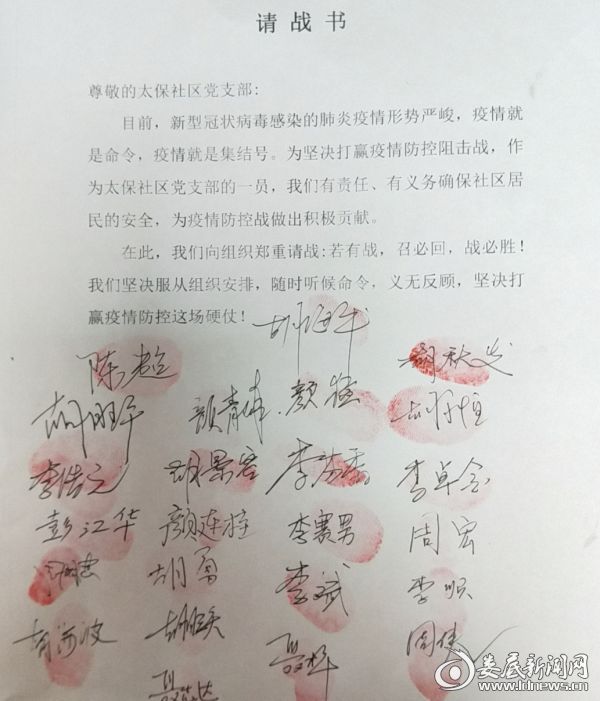 请战书
尊敬的太保社区党支部:
目前，新型冠状病毒感染的肺炎疫情形势严峻，疫情就
是命令，疫情就是集结号。为坚决打赢疫情防控阻击战，作
为太保社区党支部的一员，我们有责任、有义务确保社区居
民的安全，为疫情防控战做出积极贡献。
在此，我们向组织郑重请战:若有战，召必回，战必胜！
我们坚决服从组织安排，随时听候命令，义无反顾，坚决打
赢疫情防控这场硬仗！
陈超
颜青伟 颜猛
胡景容 李芬香 李卓金
彭江华 颜连桂 李赛男 周宏
胡勇 李斌 李顺
周健
娄底新闻网
www.ldnews.cn